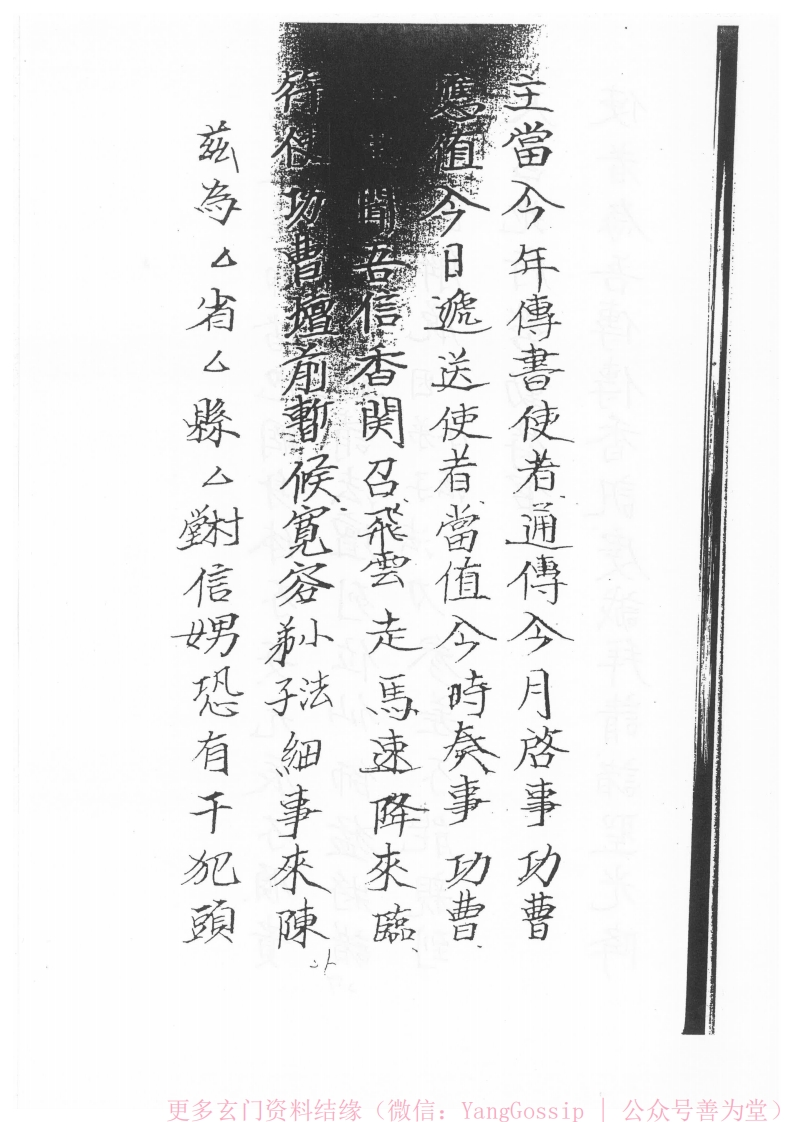 主當今年傳書使者通傳今月啓事功曹
應值今日遞送使者當值今時奏事功曹
聞吾信香関召飛雲走馬速降來臨
符使功曹壇前暫候寬容弟小子法細事來陳
茲為厶省厶縣厶堂村信男女恐有干犯頭
更多玄门资料结缘（微信：YangGossip | 公众号善为堂）